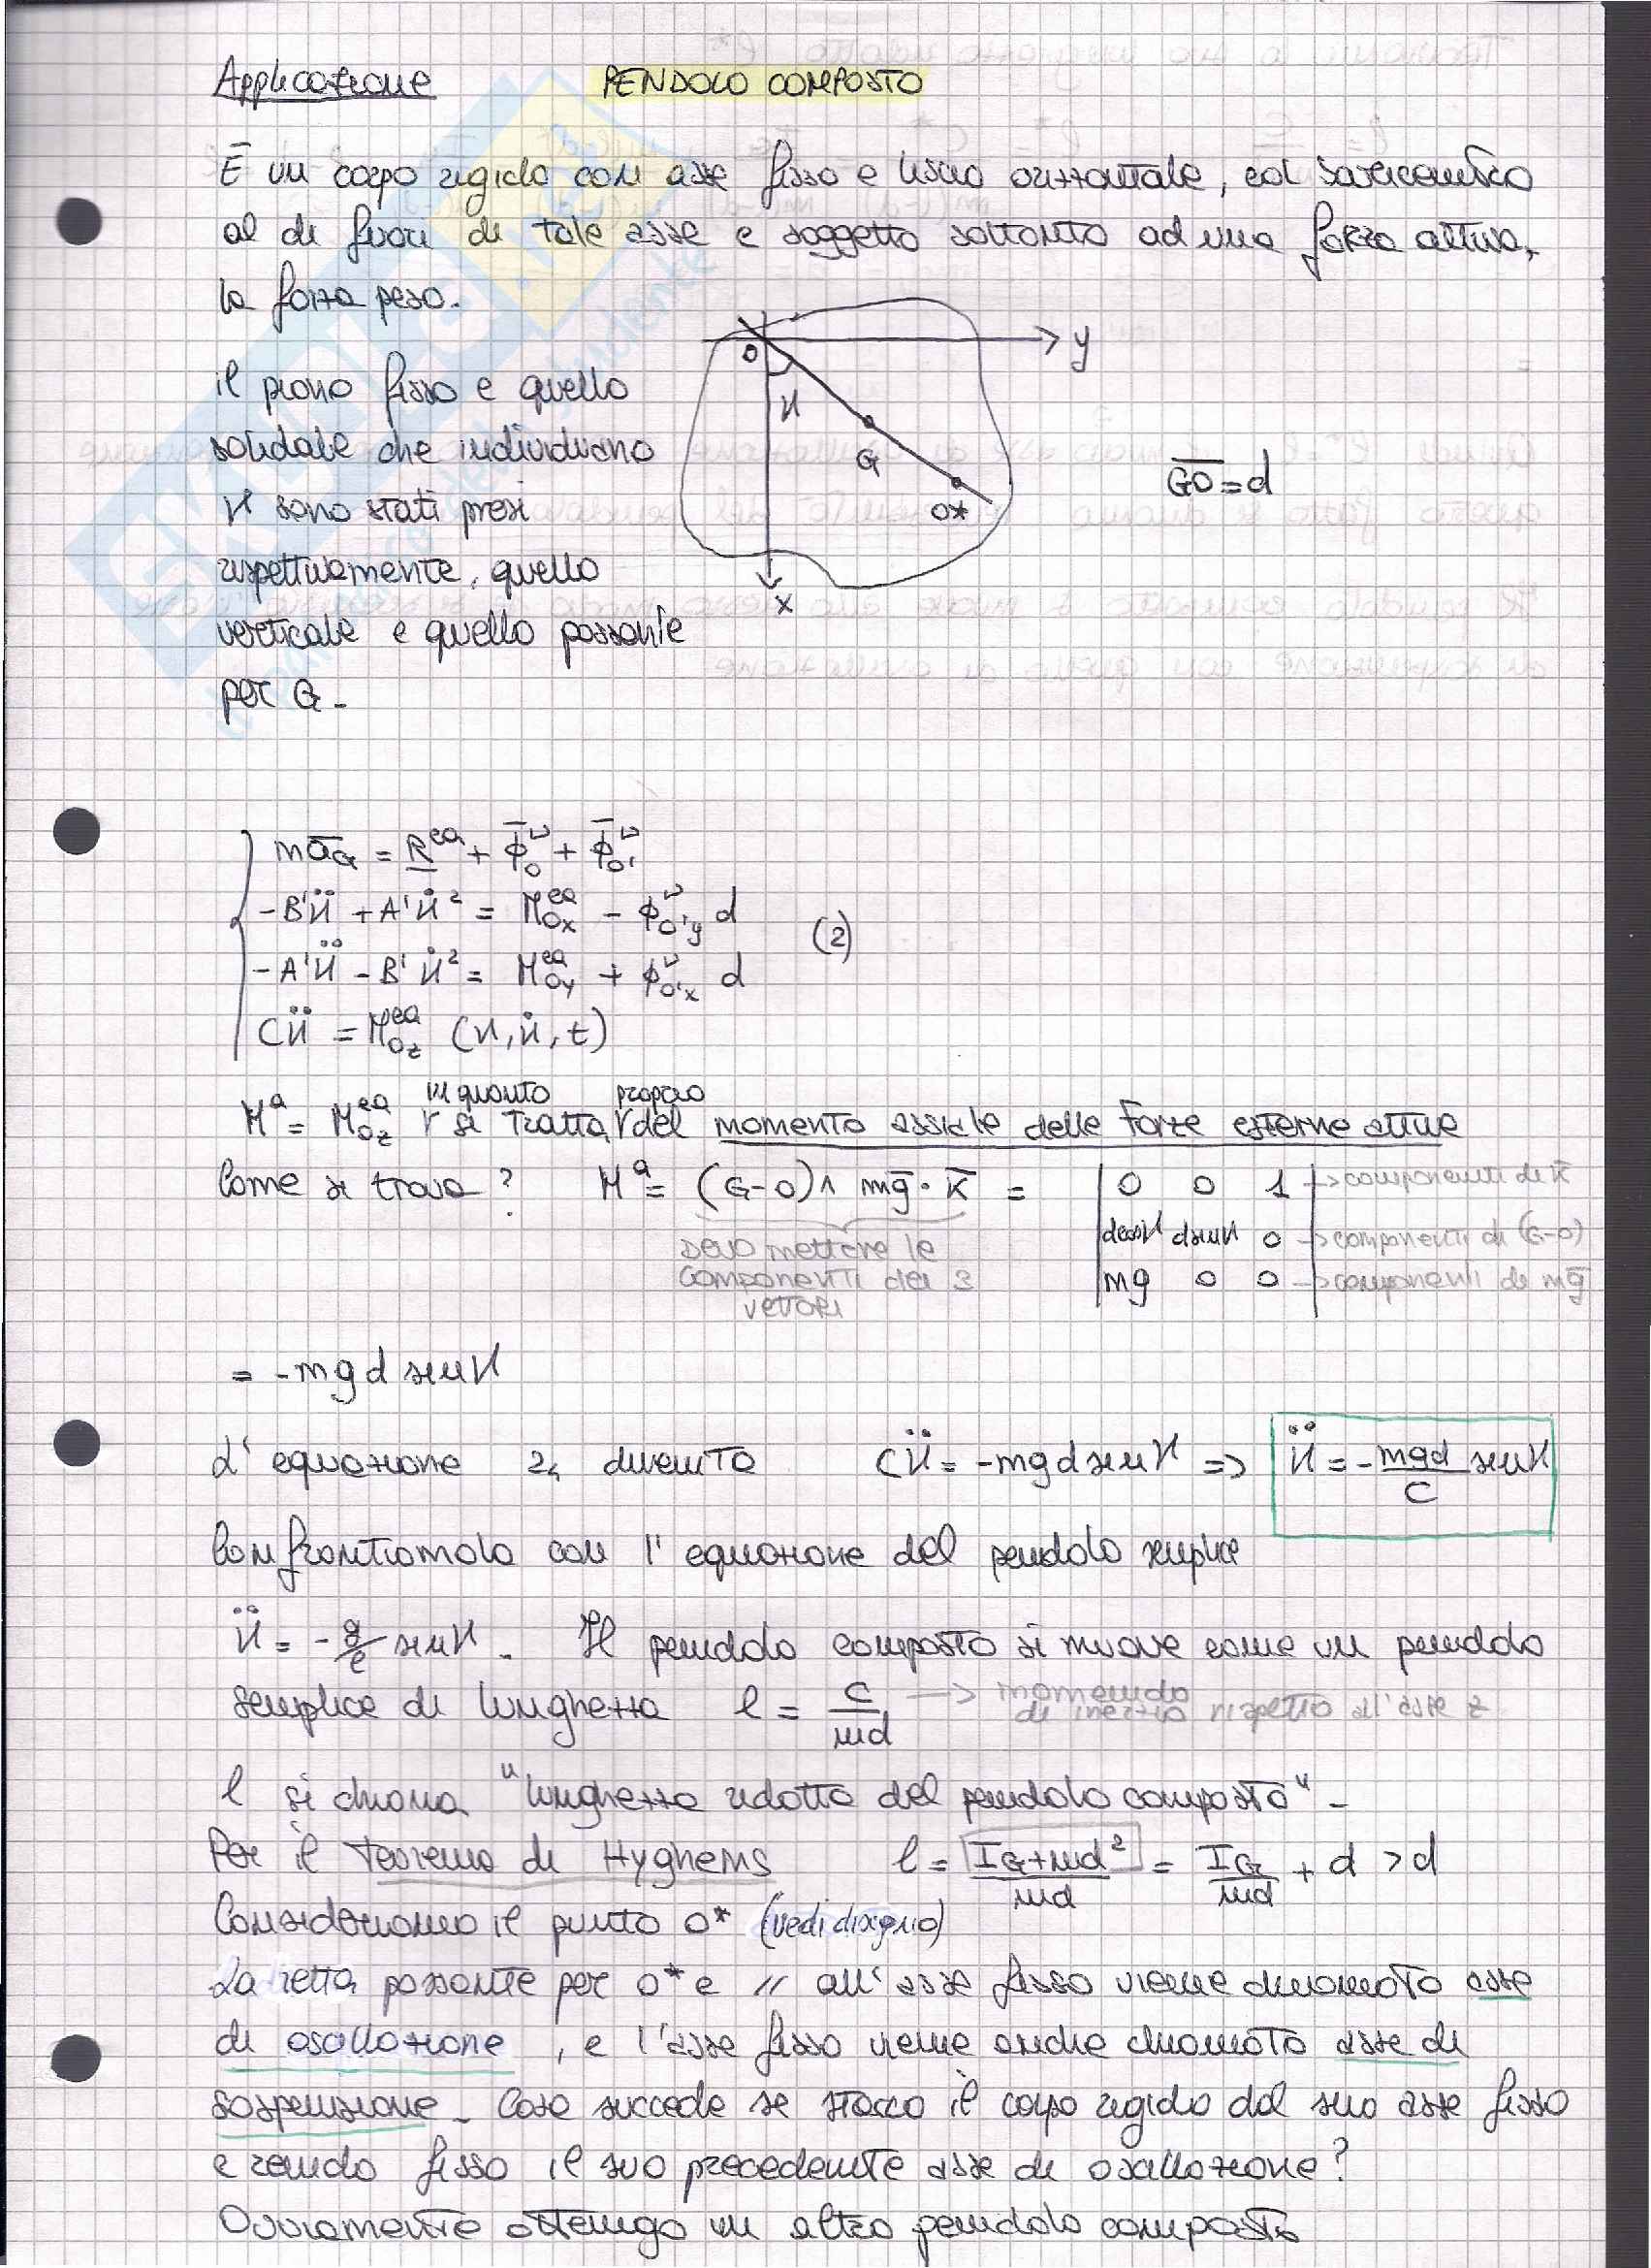 Applicazione PENDOLO COMPOSTO
È un corpo rigido con asse fisso e liscio orizzontale, col baricentro
al di fuori di tale asse e soggetto soltanto ad una forza attiva,
la forza peso.
il piano fisso e quello
solidale che individuano
ϑ sono stati presi
rispettivamente, quello
verticale e quello passante
per G.
O y
ϑ
G
O*
x
GO = d
m a̅G = R^ea + ϕ̅_O^v + ϕ̅_O'^v
-B'ϑ̈ + A'ϑ̇² = M_Ox^ea - ϕ_O'y^v d
(2)
-A'ϑ̈ - B'ϑ̇² = M_Oy^ea + ϕ_O'x^v d
Cϑ̈ = M_Oz^ea (ϑ, ϑ̇, t)
M^a = M_Oz^ea in quanto si tratta proprio del momento assiale delle forze esterne attive
Come si trova? M^a = (G-O)∧ mg̅ · K̅ = | 0 0 1 | → componenti di K̅
| dcosϑ dsenϑ 0 | → componenti di (G-O)
| mg 0 0 | → componenti di mg̅
devo mettere le
componenti dei 3
vettori
= -mgd senϑ
L'equazione 2₄ diventa Cϑ̈ = -mgd senϑ => ϑ̈ = -mgd/C senϑ
Confrontiamola con l'equazione del pendolo semplice
ϑ̈ = -g/l senϑ. Il pendolo composto si muove come un pendolo
semplice di lunghezza l = C/md → momendo di inerzia rispetto all'asse z
l si chiama "lunghezza ridotta del pendolo composto".
Per il Teorema di Hyghens l = (IG+md²)/md = IG/md + d > d
Consideriamo il punto O* (vedi disegno)
La retta passante per O* e // all'asse fisso viene chiamato asse
di oscillazione, e l'asse fisso viene anche chiamato asse di
sospensione. Cosa succede se stacco il corpo rigido dal suo asse fisso
e rendo fisso il suo precedente asse di oscillazione?
Ovviamente ottengo un altro pendolo composto